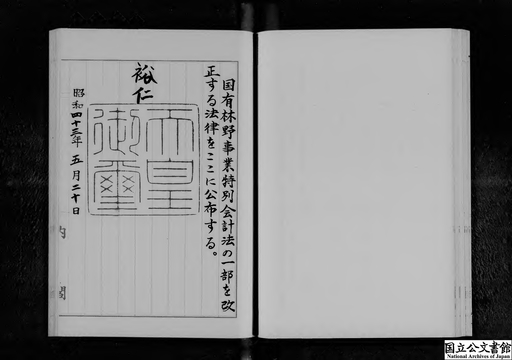 国有林野事業特別会計法の一部を改
正する法律をここに公布する。
裕仁
天皇
御璽
昭和四十三年五月二十日
内閣
国立公文書館
National Archives of Japan